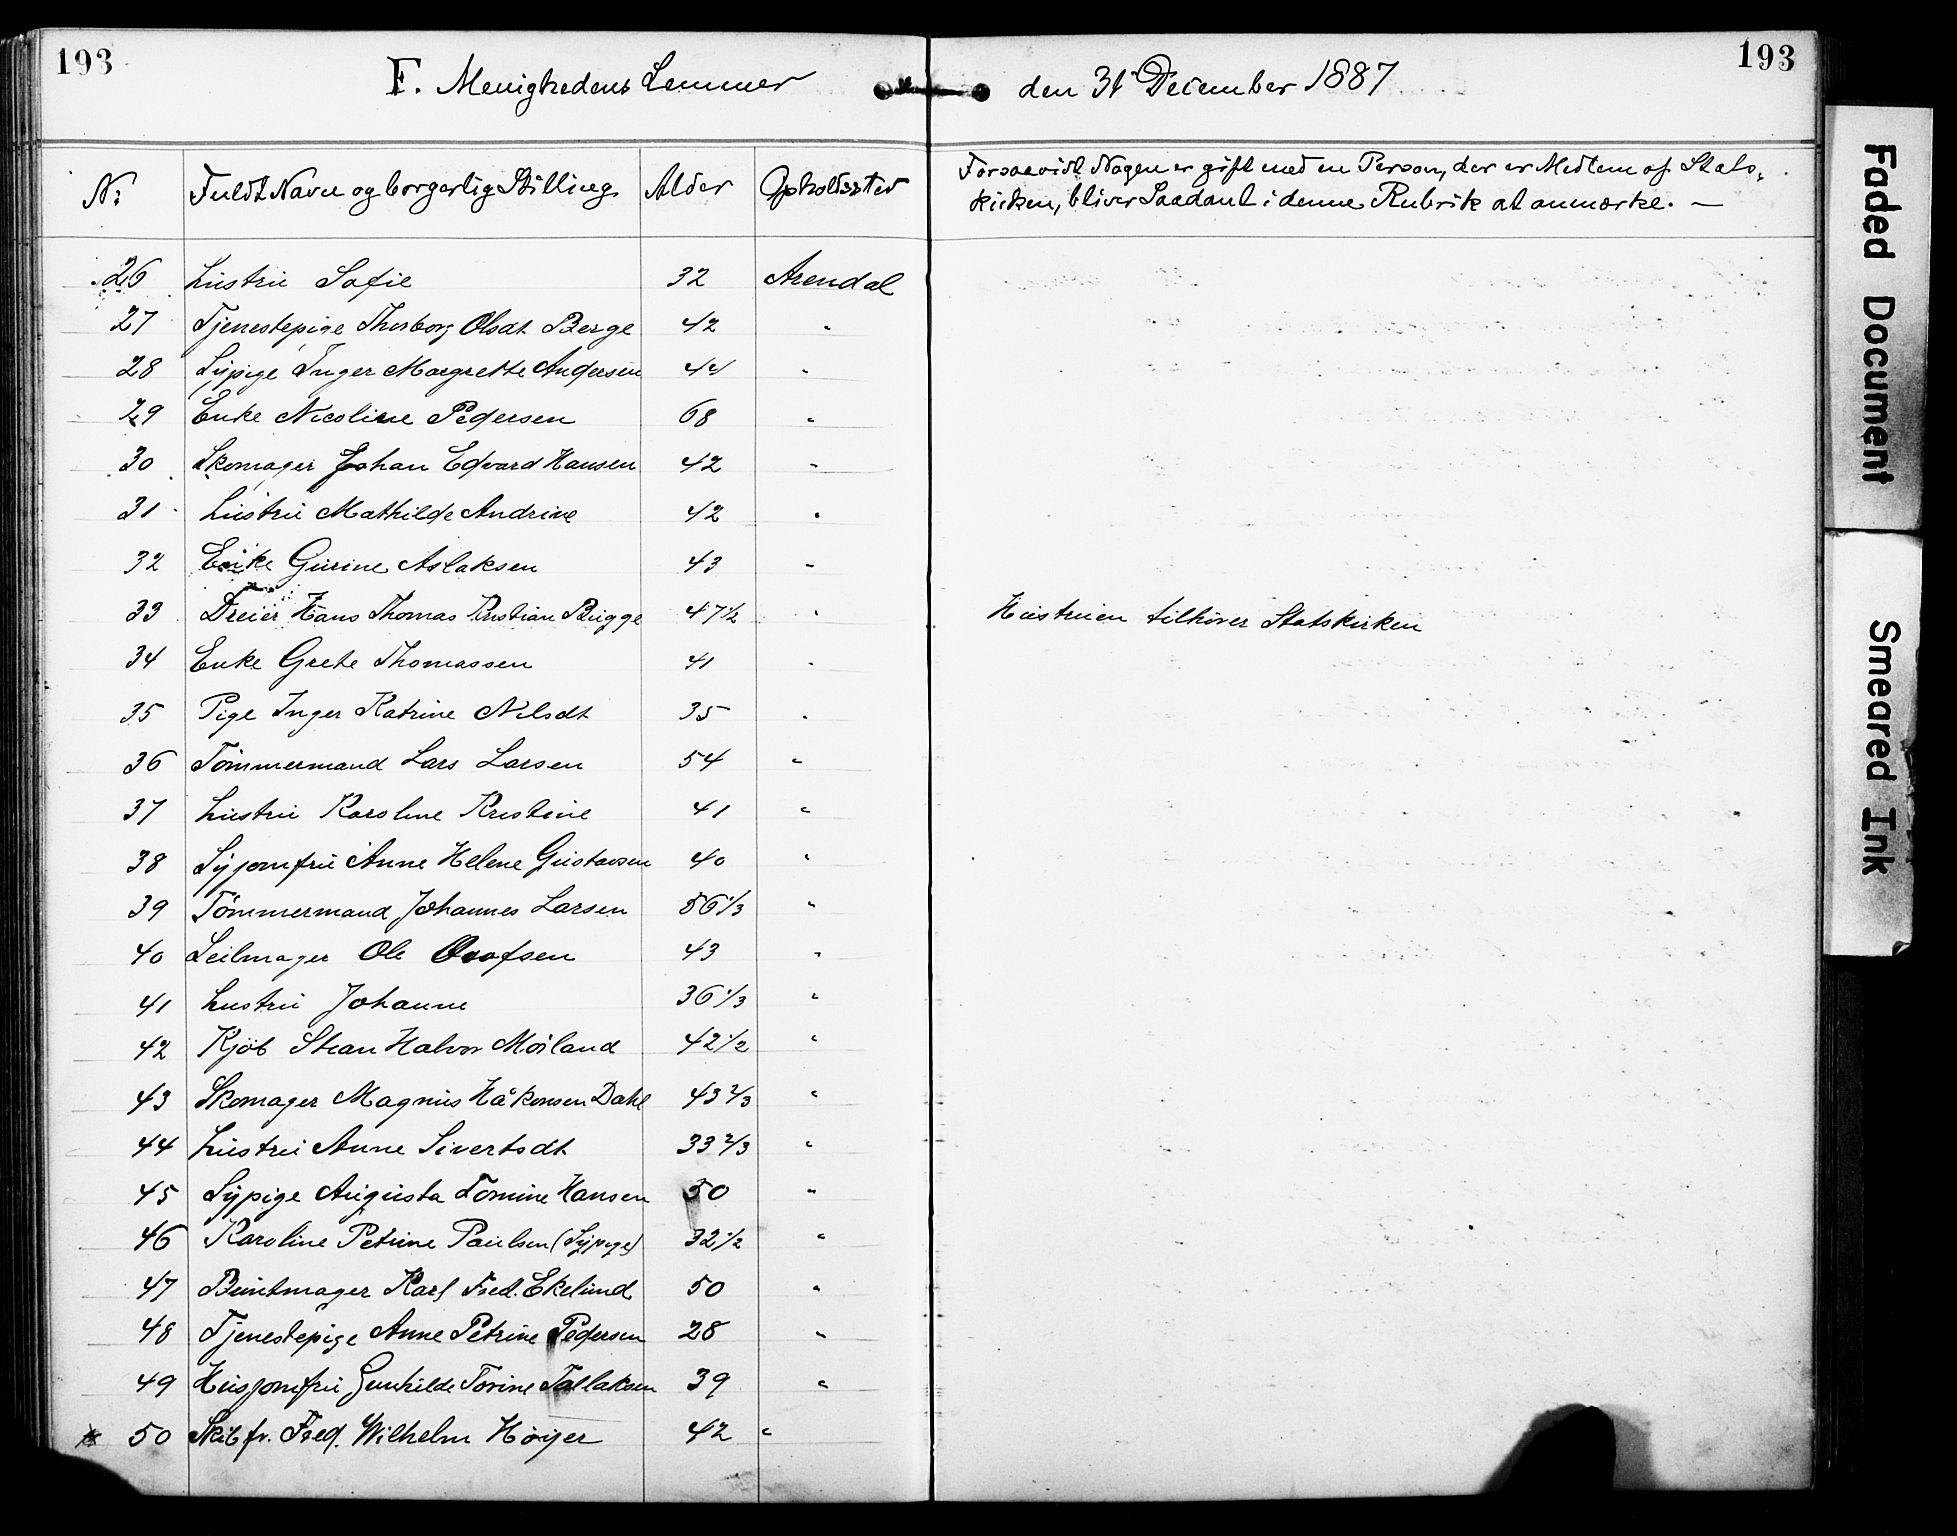 193
193
F. Menighedens Lemmer den 31 December 1887
Nr Fuldt Navn og borgerlig Stilling Alder Opholdssted
Forsaavidt Nogen er gift med en Person, der er Medlem af Stats,
kirken, bliver Saadant i denne Rubrik at anmærke. —
26 Hustru Sofie 32 Arendal
27 Tjenestepige Thorborg Olsdt Berge 42 "
28 Sypige Inger Margrethe Andersen 44 "
29 Enke Nicoline Pedersen 68 "
30 Skomager Johan Edvard Hansen 42 "
31 Hustru Mathilde Andrine 42 "
32 Enke Gurine Aslaksen 43 "
33 Dreier Hans Thomas Kristian Brigge 47 1/2 " Hustruen tilhører Statskirken
34 Enke Grete Thomassen 41 "
35 Pige Inger Katrine Nilsdt 35 "
36 Tömmermand Lars Larsen 54 "
37 Hustru Karoline Kristine 41 "
38 Syjomfru Anne Helene Gustavsen 40 "
39 Tömmermand Johannes Larsen 56 1/3 "
40 Seilmager Ole Oolfsen 43 "
41 Hustru Johanne 36 1/3 "
42 Kjöb Stian Halvor Möiland 42 1/2 "
43 Skomager Magnus Håkonsen Dahl 43 2/3 "
44 Hustru Anne Sivertsdt 33 2/3 "
45 Sypige Augusta Tomine Hansen 50 "
46 Karoline Petrine Paulsen (Sypige) 32 1/2 "
47 Buntmager Karl Fred. Ekelund 50 "
48 Tjenestepige Anne Petrine Pedersen 28 "
49 Husjomfru Gunhilde Torine Tallaksen 39 "
50 Skibfr. Fred. Wilhelm Höyer 42 "
Faded Document
Smeared Ink